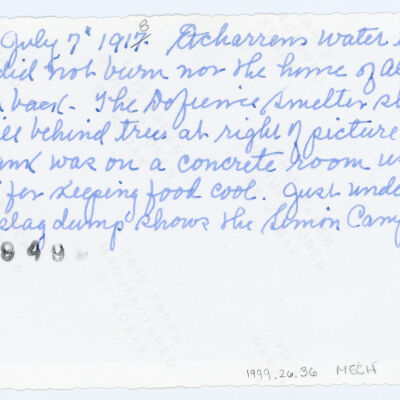 July 7" 1917. 8 Etcharrens water
did not burn nor the home of Al
back. The Dofience Smelter s
behind trees at right of picture
was on a concrete room u
for keeping food cool. Just unde
slag dump shows the Simon Camp
849
THIS PAPER MANUFACTURED BY KODAK
1999.26.36 MECH